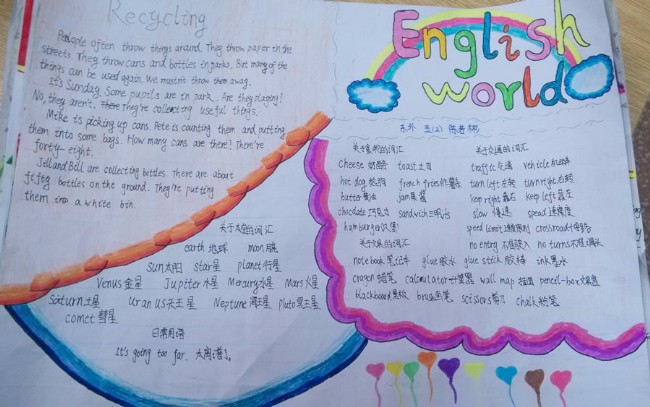 Recycling
People often throw things around. They throw paper in the
streets. They throw cans and bottles in parks. But many of the
things can be used again. We mustn't throw them away.
It's Sunday. Some pupils are in park. Are they playing?
No, they aren't. They're collecting useful things.
Mike is picking up cans. Pete is counting them and putting
them into some bags. How many cans are there? There're
forty-eight.
Jell and Bill are collecting bottles. There are about
fifty bottles on the ground. They're putting
them into a white bin.
关于太空的词汇
earth 地球 moon 月球
Sun 太阳 star 星 planet 行星
Venus 金星 Jupiter 木星 Meraury 水星 Mars 火星
Saturn 土星 Uranus 天王星 Neptune 海王星 pluto 冥王星
comet 彗星
日常用语
It's going too far. 太离谱了。
English
world
五(2)
关于食物的词汇
cheese 奶酪 toast 土司
hot dog 热狗 french fries 炸薯条
butter 黄油 jam 果酱
chocolate 巧克力 sandwich 三明治
hamburger 汉堡
关于文具的词汇
notebook 笔记本 glue 胶水 glue stick 胶棒 ink 墨水
crayon 蜡笔 calculator 计算器 wall map 挂图 pencil-box 文具盒
blackboard 黑板 brush 画笔 scissors 剪刀 chalk 粉笔
关于交通的词汇
traffic 交通 vehicle
turn left 左转 turn right 右转
keep right 靠右 keep left 靠左
slow 慢速 speed 速度
speed limit crossroad
no entry 不准驶入 no turns 不准调头